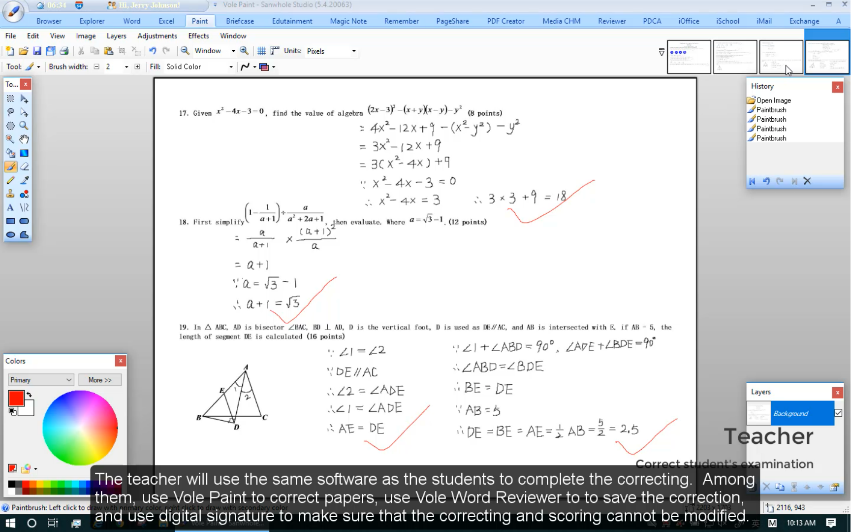 00:34
Hi, Jerry Johnson!
Vole Paint - Sanwhole Studio (5.4.20063)
Browser Explorer Word Excel Paint Briefcase Edutainment Magic Note Remember PageShare PDF Creator Media CHM Reviewer PDCA iOffice iSchool iMail Exchange
File Edit View Image Layers Adjustments Effects Window
Window Units: Pixels
Tool: Brush width: 2 Fill: Solid Color
To...
History
Open Image
Paintbrush
Paintbrush
Paintbrush
Paintbrush
17. Given x²-4x-3=0, find the value of algebra (2x-3)²-(x+y)(x-y)-y² (8 points)
= 4x²-12x+9-(x²-y²)-y²
= 3x²-12x+9
= 3(x²-4x)+9
∵ x²-4x-3=0
∴ x²-4x=3 ∴ 3×3+9=18
18. First simplify (1-1/(a+1))÷a/(a²+2a+1), then evaluate. Where a=√3-1. (12 points)
= a/(a+1) × (a+1)²/a
= a+1
∵ a=√3-1
∴ a+1=√3
19. In △ ABC, AD is bisector ∠BAC, BD ⊥ AD, D is the vertical foot, D is used as DE∥AC, and AB is intersected with E, if AB = 5, the
length of segment DE is calculated (16 points)
∵ ∠1=∠2
∵ DE∥AC
∴ ∠2=∠ADE
∴ ∠1=∠ADE
∴ AE=DE
∵ ∠1+∠ABD=90°, ∠ADE+∠BDE=90°
∴ ∠ABD=∠BDE
∴ BE=DE
∵ AB=5
∴ DE=BE=AE=1/2 AB=5/2=2.5
A
1
2
E
B
D
C
Colors
Primary More >>
Layers
Background
Teacher
Correct student's examination
The teacher will use the same software as the students to complete the correcting. Among
them, use Vole Paint to correct papers, use Vole Word Reviewer to to save the correction,
and use digital signature to make sure that the correcting and scoring cannot be nodified
Paintbrush: Left click to draw with primary color, right click to draw
2116, 943
10:13